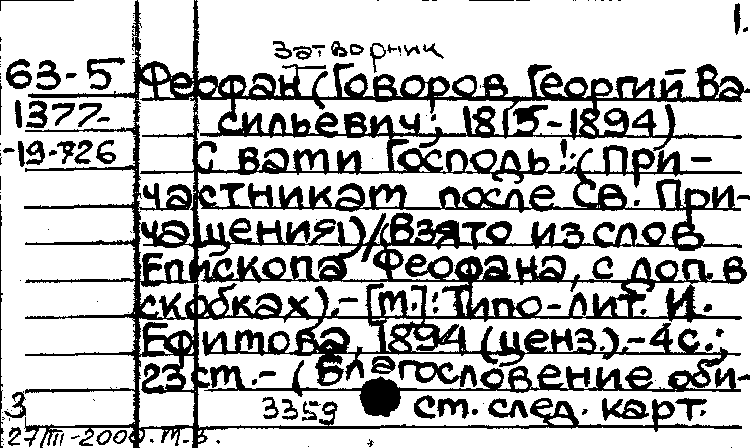 1.
Затворник
63-5 Феофан (Говоров, Георгий Ва-
1377- сильевич; 1815-1894)
-19-726 С вами Господь!: (При-
частникам после Св. При-
чащения)/(Взято из слов
Епископа Феофана, с доп. в
скобках).- [М.]: Типо-лит. И.
Ефимова, 1894 (ценз.).-4с.;
23 см.- (Благословение оби-
3 3359 см. след. карт.
27/III-2000. М.В.